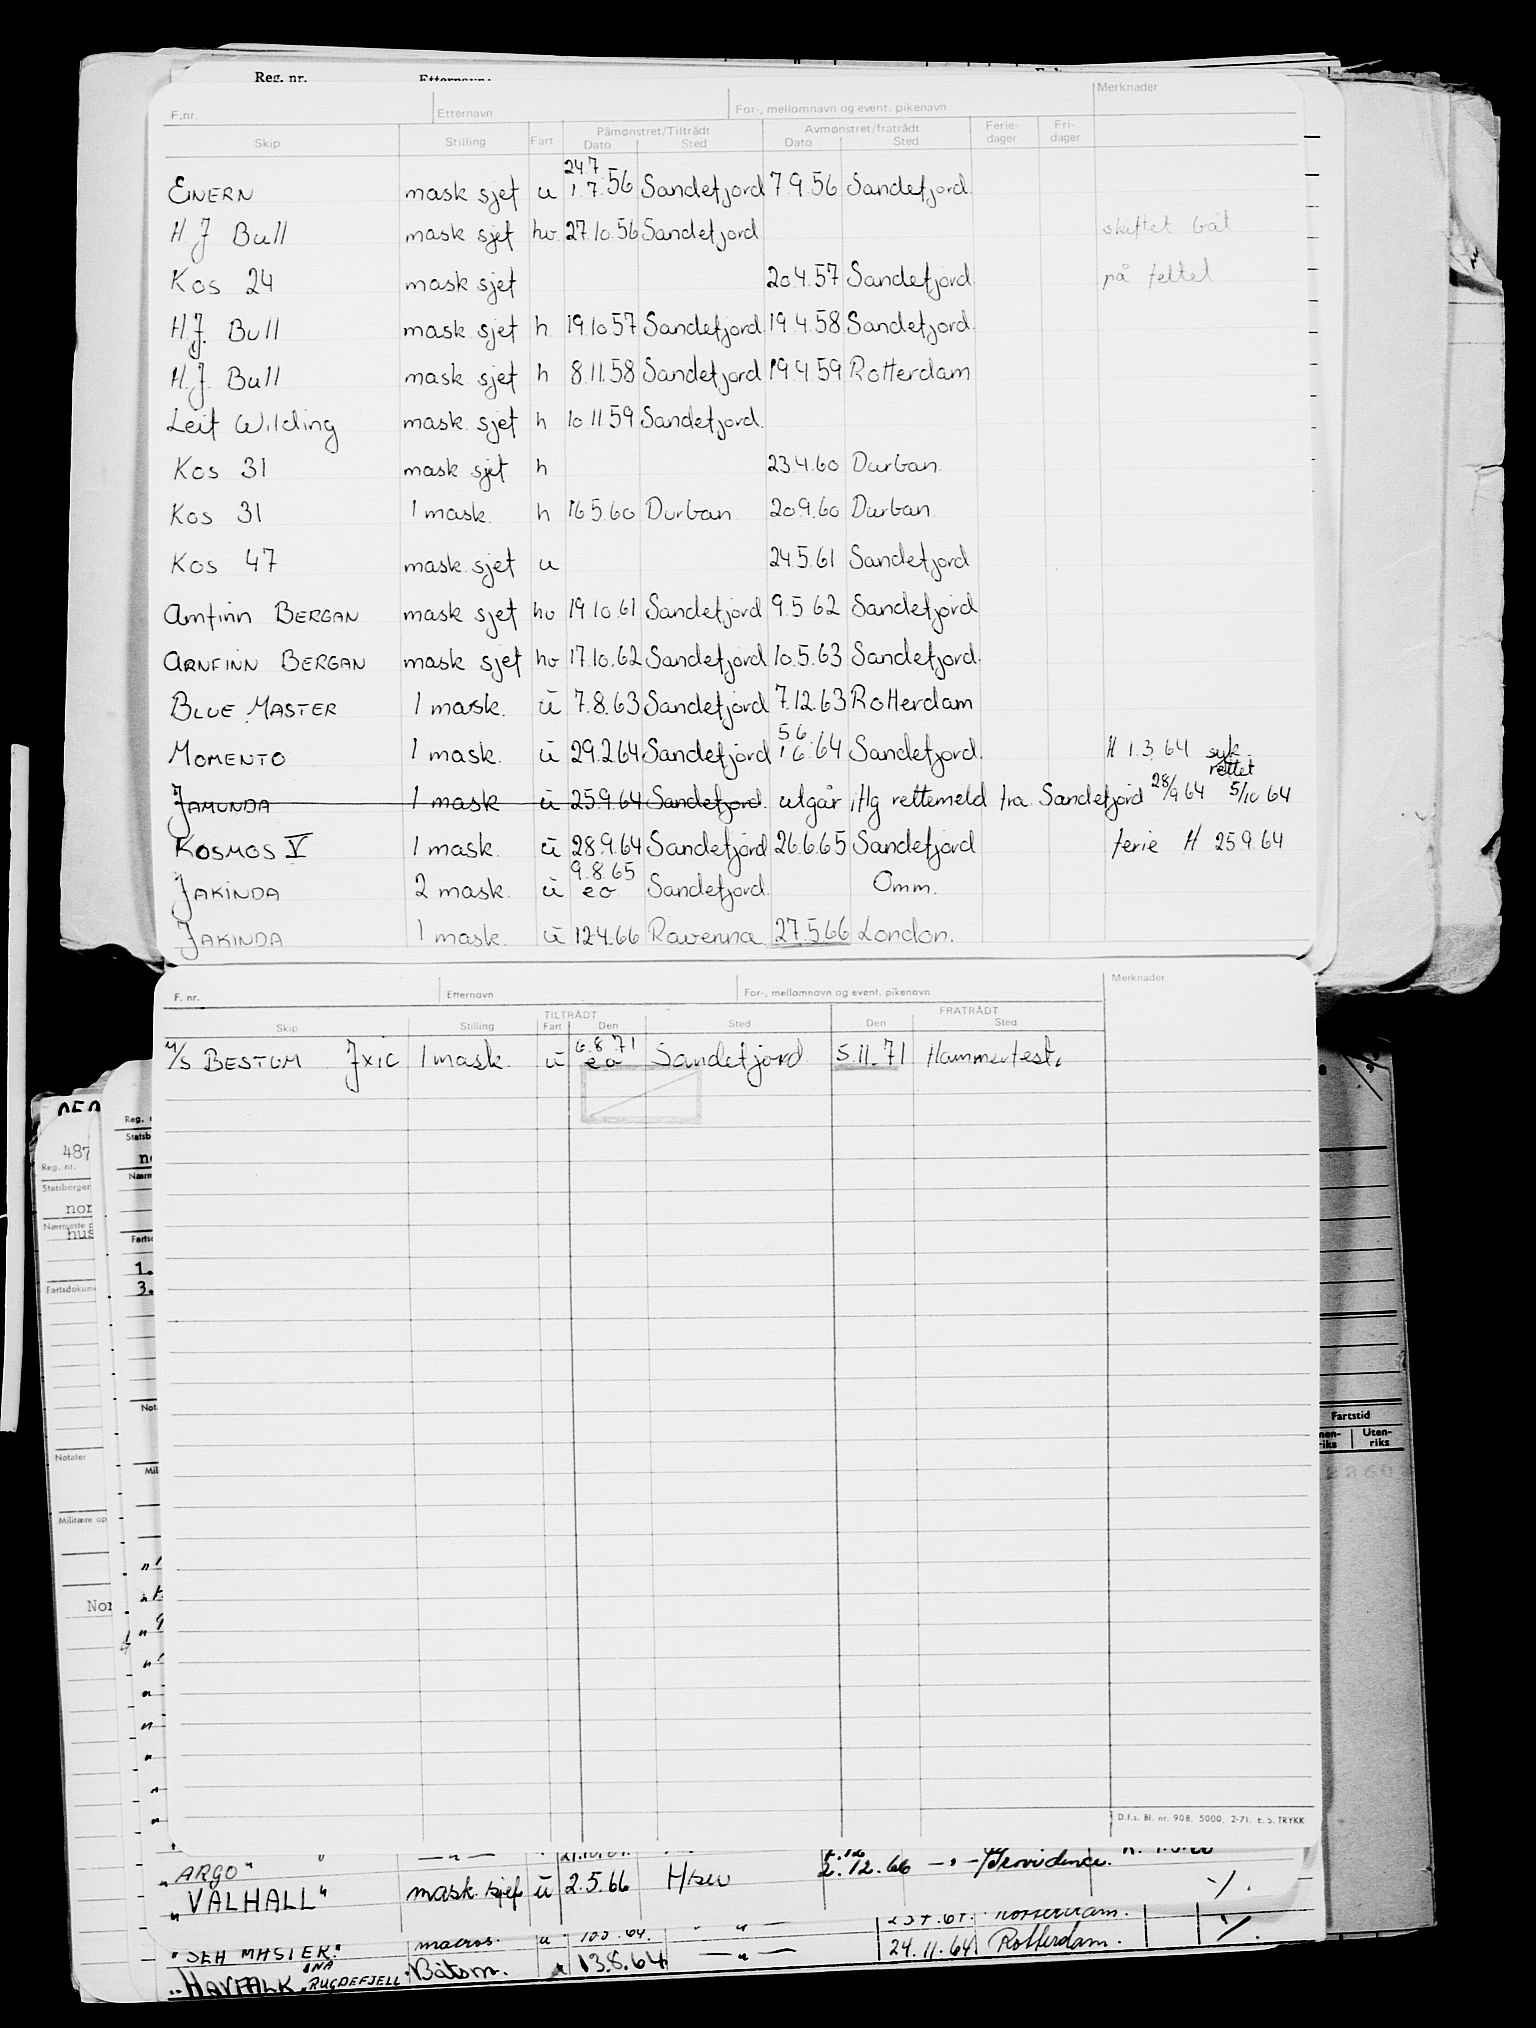 Reg. nr.
F.nr. Etternavn For-, mellomnavn og event. pikenavn Merknader
Skip Stilling Fart Påmønstret/Tiltrådt Dato Sted Avmønstret/fratrådt Dato Sted Ferie-dager Fri-dager
24.7
EINERN mask sjef u 1.7.56 Sandefjord 7.9.56 Sandefjord
H J Bull mask sjef hv. 27.10.56 Sandefjord skiftet båt
Kos 24 mask sjef 20.4.57 Sandefjord på feltet
H.J. Bull mask sjef h 19.10.57 Sandefjord 19.4.58 Sandefjord
H.J. Bull mask sjef h 8.11.58 Sandefjord 19.4.59 Rotterdam
Leif Wilding mask. sjef h 10.11.59 Sandefjord.
Kos 31 mask sjef h 23.4.60 Durban.
Kos 31 1 mask. h 16.5.60 Durban 20.9.60 Durban
Kos 47 mask. sjef u 24.5.61 Sandefjord
Arnfinn BERGAN mask sjef hv 19.10.61 Sandefjord 9.5.62 Sandefjord
ARNFINN BERGAN mask sjef hv 17.10.62 Sandefjord 10.5.63 Sandefjord.
BLUE MASTER 1 mask. ū 7.8.63 Sandefjord 7.12.63 Rotterdam
5 6
MOMENTO 1 mask. ū 29.2.64 Sandefjord 1.6.64 Sandefjord. H 1.3.64 syk.
rettet
JAMUNDA 1 mask ū 25.9.64 Sandefjord. utgår iflg rettemeld fra Sandefjord 28/9 64 5/10 64
KOSMOS V 1 mask. ū 28.9.64 Sandefjord 26.6.65 Sandefjord ferie H 25.9.64
9.8.65
JAKINDA 2 mask. ū eo Sandefjord. Omm.
JAKINDA 1 mask. ū 12.4.66 Ravenna. 27.5.66 London.
F. nr. Etternavn For-, mellomnavn og event. pikenavn Merknader
TILTRÅDT FRATRÅDT
Skip Stilling Fart Den Sted Den Sted
6.8.71
M/S BESTUM JXIC 1 mask. ū eo Sandefjord 5.11.71 Hammerfest.
487
Reg. nr.
nor
hus
Notater
Militære op
Nor
1.
3.
Fartstid
Uten-riks
D.f.s. Bl. nr. 908. 5000. 2-71. E. S. TRYKK
"ARGO"
"VALHALL" mask. sjef ū 2.5.66 2.12.66 Providence.
"SEA MASTER" Rotterdam.
"HAVFALK RUGDEFJELL Båtsm. 13.8.64 24.11.64 Rotterdam.